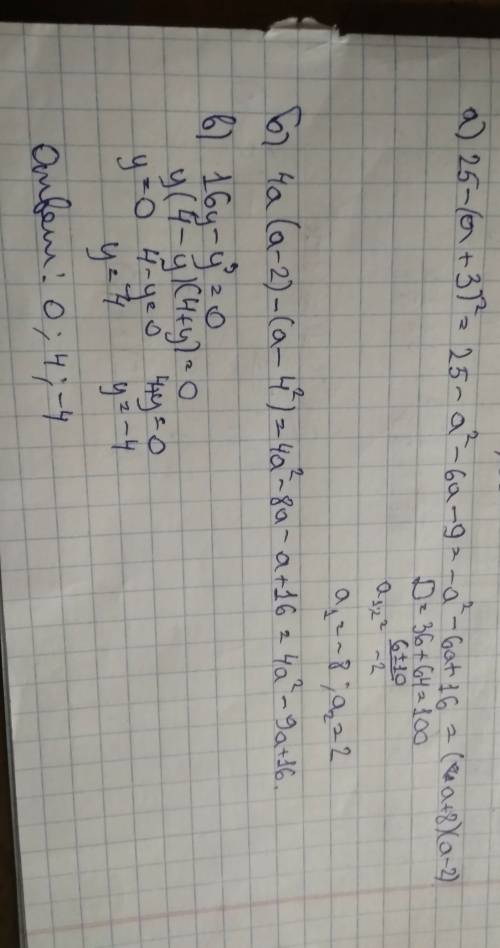 а) 25-(a+3)² = 25 - a² - 6a - 9 = -a² - 6a + 16 = (a+8)(a-2)
D = 36 + 64 = 100
a₁,₂ = (6±10)/-2
a₁ = -8 ; a₂ = 2
б) 4a(a-2) - (a-4²) = 4a² - 8a - a + 16 = 4a² - 9a + 16.
в) 16y - y³ = 0
y(4-y)(4+y) = 0
y = 0 4-y=0 4+y=0
y = 4 y = -4
Ответ: 0; 4; -4